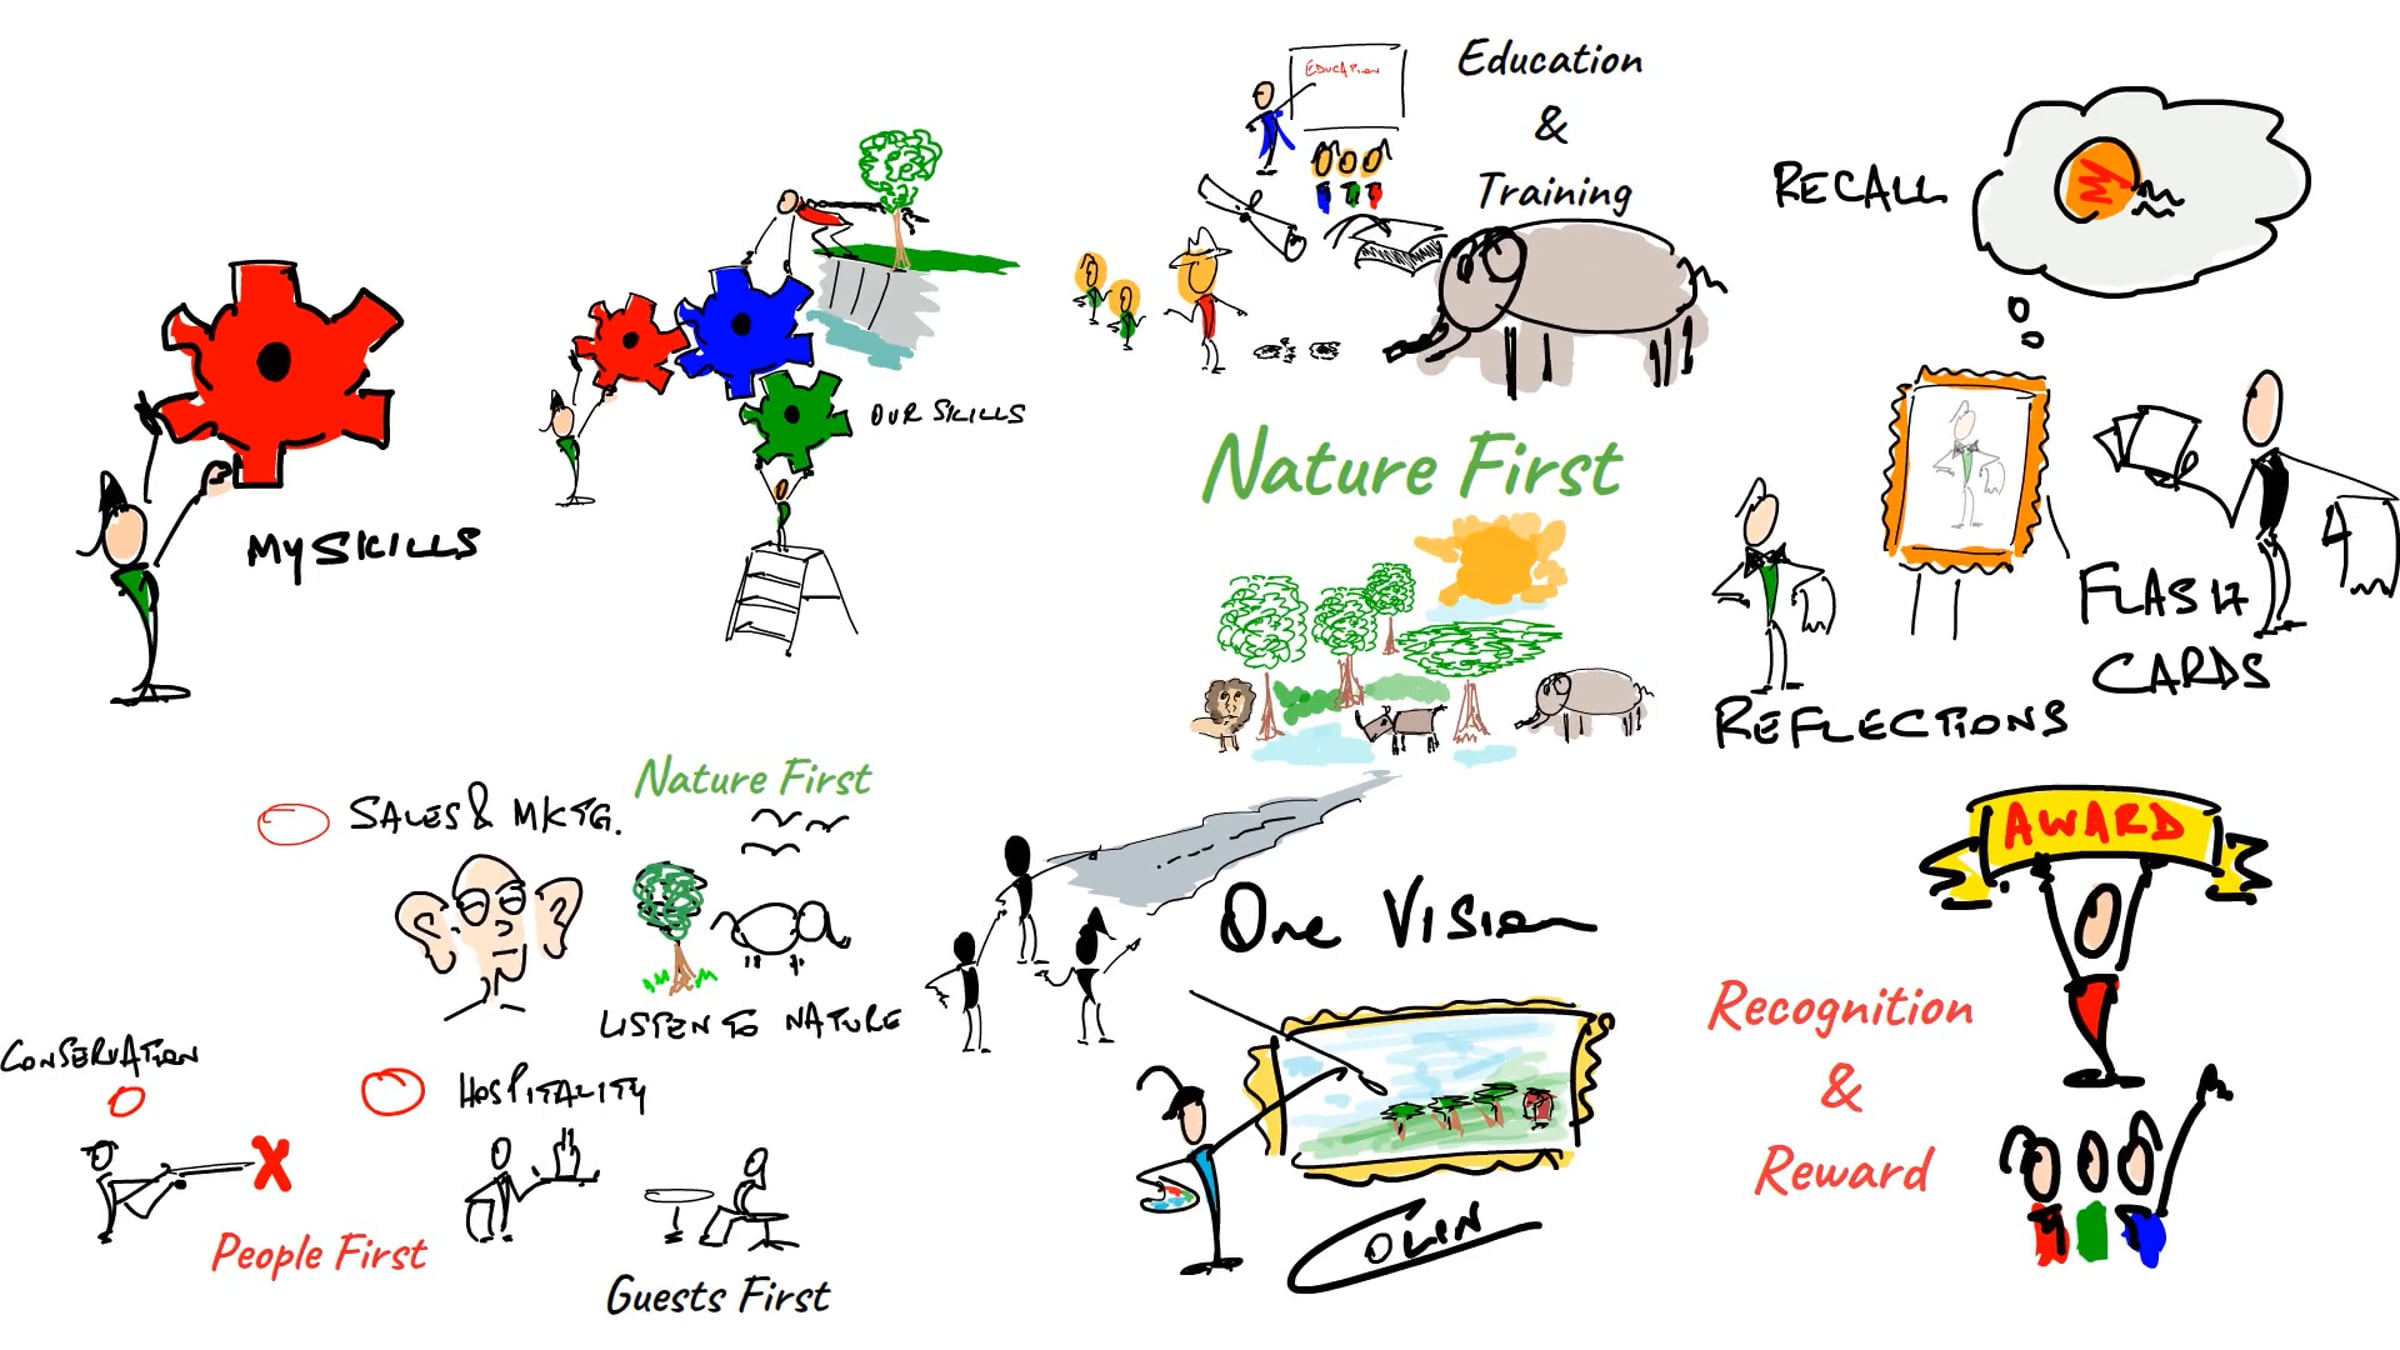 EDUCATION
Education
&
Training
RECALL
MY SKILLS
OUR SKILLS
Nature First
FLASH
CARDS
REFLECTIONS
Nature First
SALES & MKTG.
LISTEN TO NATURE
One Vision
AWARD
CONSERVATION
HOSPITALITY
X
People First
Guests First
COLIN
Recognition
&
Reward